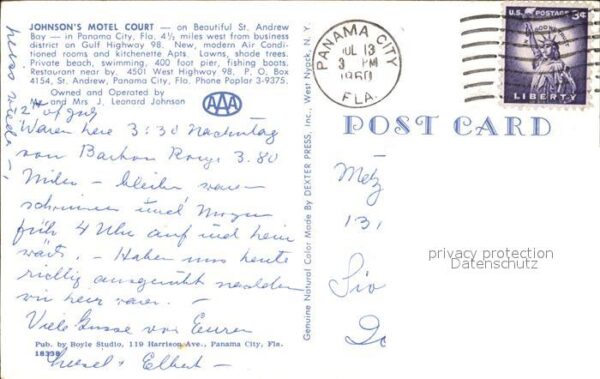 JOHNSON'S MOTEL COURT — on Beautiful St. Andrew
Bay — in Panama City, Fla, 4½ miles west from business
district on Gulf Highway 98. New, modern Air Condi-
tioned rooms and kitchenette Apts. Lawns, shade trees.
Private beach, swimming, 400 foot pier, fishing boats.
Restaurant near by. 4501 West Highway 98. P. O. Box
4154, St. Andrew, Panama City, Fla. Phone Poplar 3-9375.
Owned and Operated by
Mr. and Mrs. J. Leonard Johnson
AAA
12 of July
Waren here 3:30 Nachmittag
von 3.80
Miles —
schwimmen und Morgen
früh 4 Uhr auf und heim
wärts. — Haben uns heute
richtig ausgeruht
wir hier waren. —
Viele Grüsse von Euren
Liesel & Elbert —
Pub. by Boyle Studio, 119 Harrison Ave., Panama City, Fla.
18338
Genuine Natural Color Made By DEXTER PRESS, Inc., West Nyack, N. Y.
PANAMA CITY
JUL 13
3 PM
1960
FLA.
U.S. POSTAGE 3¢
IN GOD WE TRUST
LIBERTY
POST CARD
Metz
131
privacy protection
Datenschutz